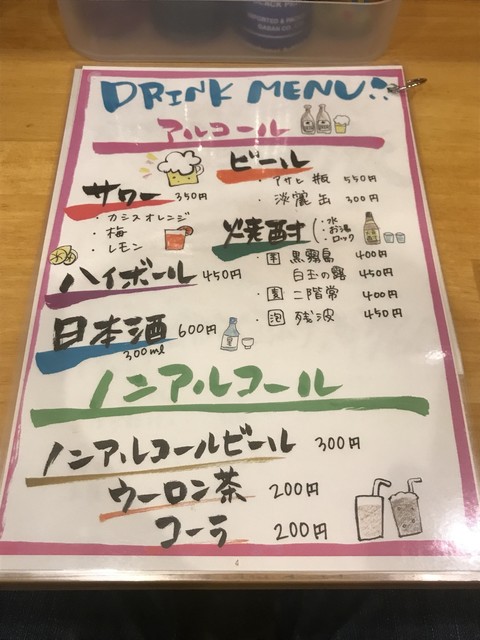 DRINK MENU
アルコール
サワー 350円
・カシスオレンジ
・梅
・レモン
ハイボール 450円
日本酒 600円
300ml
ビール
・アサヒ瓶 550円
・淡麗缶 300円
焼酎(・水
・お湯
・ロック
・黒霧島 400円
白玉の露 450円
・二階常 400円
・泡 残波 450円
ノンアルコール
ノンアルコールビール 300円
ウーロン茶 200円
コーラ 200円
4